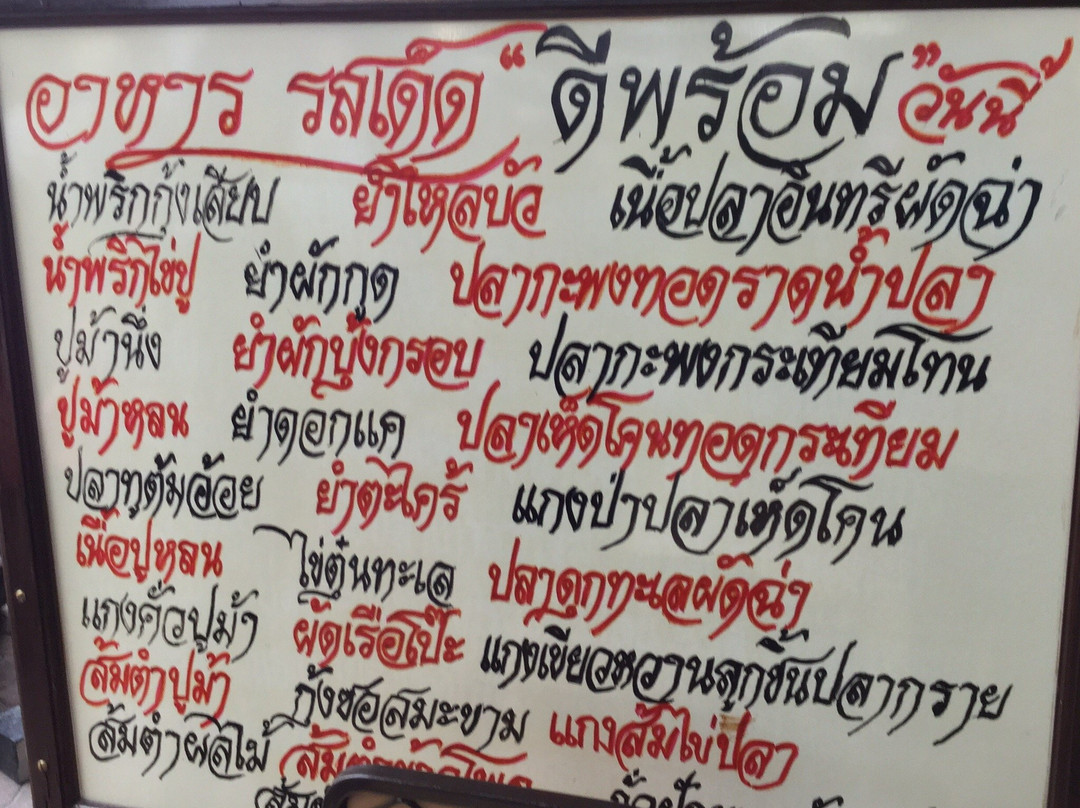 อาหาร รสเด็ด "ดีพร้อม" วันนี้
น้ำพริกกุ้งเสียบ ยำไหลบัว เนื้อปลาอินทรีผัดฉ่า
น้ำพริกไข่ปู ยำผักกูด ปลากะพงทอดราดน้ำปลา
ปูม้านึ่ง ยำผักบุ้งกรอบ ปลากะพงกระเทียมโทน
ปูม้าหลน ยำดอกแค ปลาเห็ดโคนทอดกระเทียม
ปลาทูต้มอ้อย ยำตะไคร้ แกงป่าปลาเห็ดโคน
เนื้อปูหลน ไข่ตุ๋นทะเล ปลาดุกทะเลผัดฉ่า
แกงคั่วปูม้า ผัดเรือโป๊ะ แกงเขียวหวานลูกชิ้นปลากราย
ส้มตำปูม้า กุ้งซอสมะขาม แกงส้มไข่ปลา
ส้มตำผลไม้